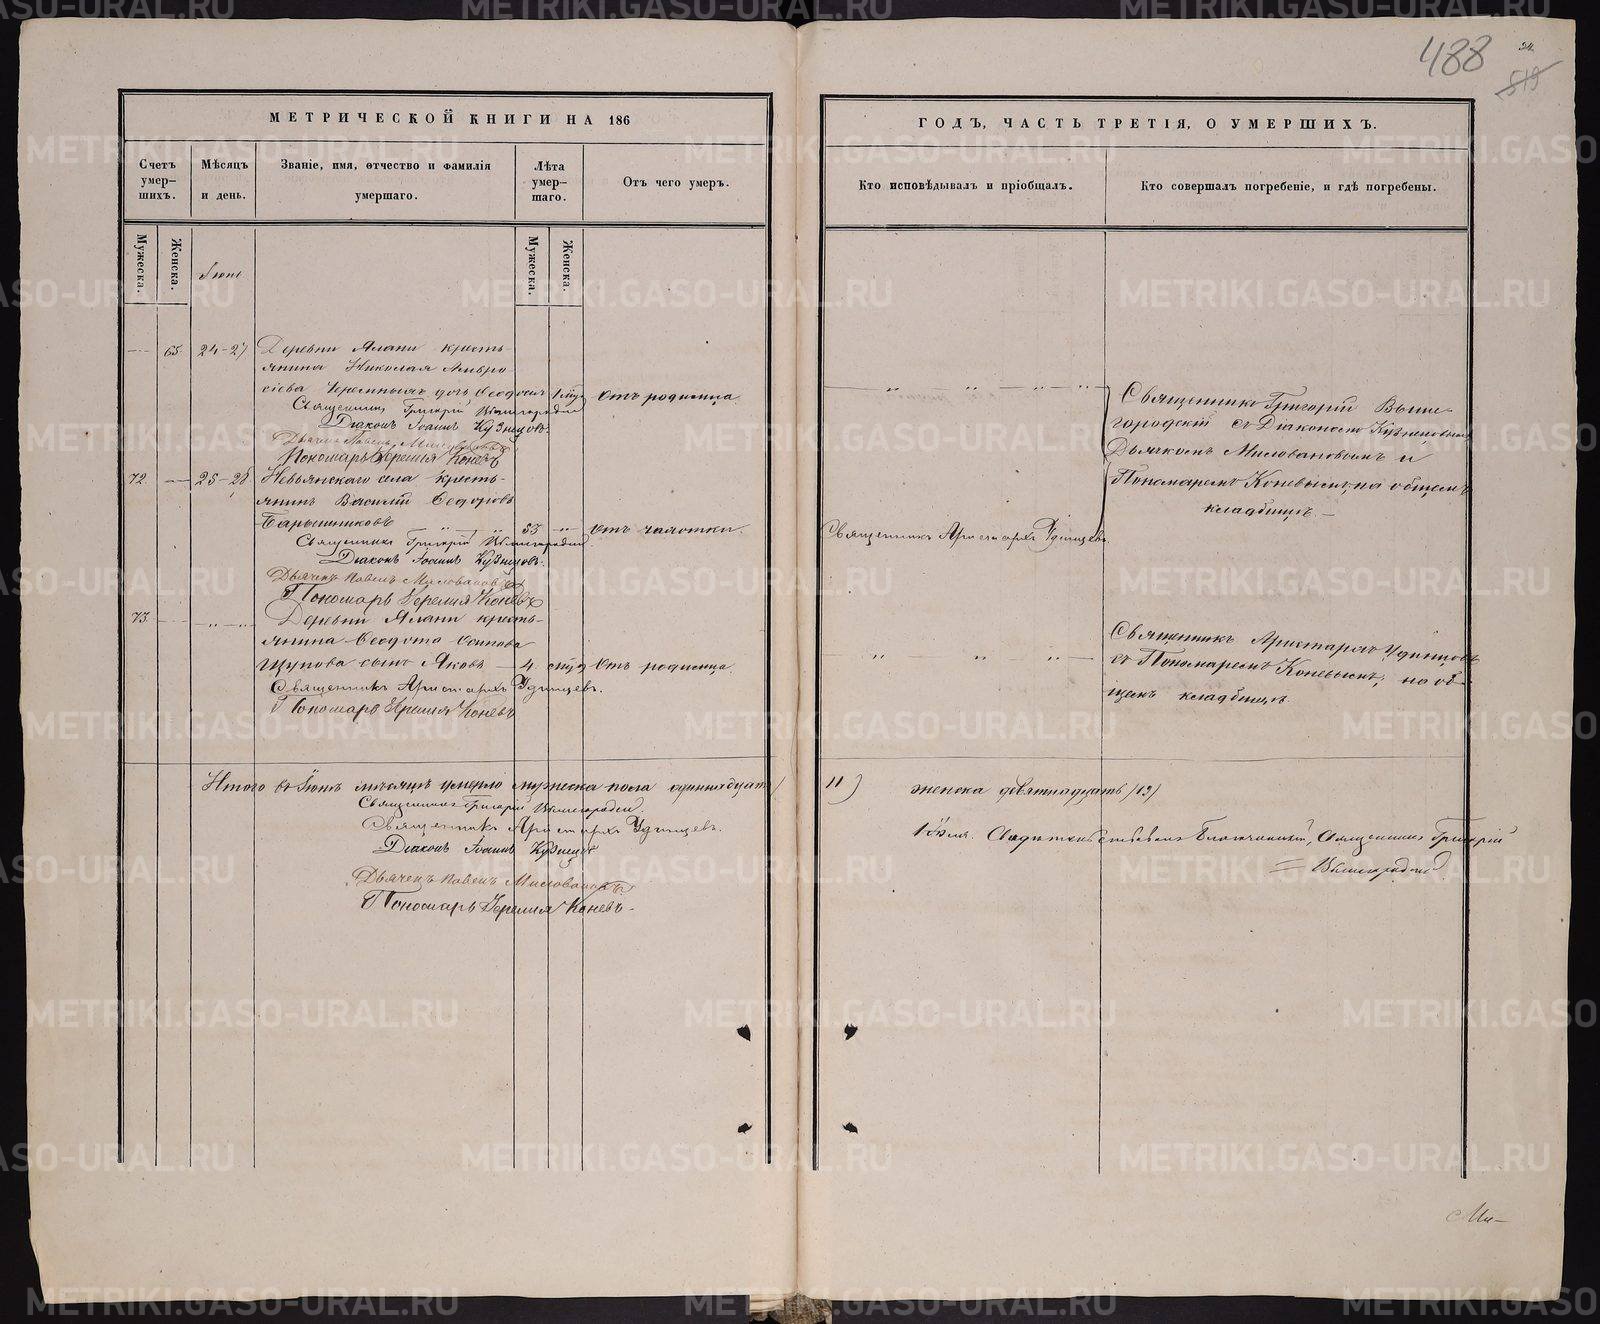 488
24
519
МЕТРИЧЕСКОЙ КНИГИ НА 186
ГОДЪ, ЧАСТЬ ТРЕТІЯ, О УМЕРШИХЪ.
Счетъ умер-шихъ.
Мѣсяцъ и день.
Званіе, имя, отчество и фамилія умершаго.
Лѣта умер-шаго.
Отъ чего умеръ.
Кто исповѣдывалъ и пріобщалъ.
Кто совершалъ погребеніе, и гдѣ погребены.
Мужеска.
Женска.
Іюнь
Мужеска.
Женска.
65. 24-27 Деревни Ялани кресть-
янина Николая Амвро
сіева дочь Феодосія Отъ родимца.
Священникъ Григорій Вышегородскій
Діаконъ Іоаннъ Кузнецовъ.
Дьячекъ Павелъ Миловановъ
Пономарь Іеремія Коневъ
Священникъ Григорій Выше-
городскій съ Діакономъ Кузнецовымъ
Дьячкомъ Миловановымъ и
Пономаремъ Коневымъ, на общемъ
кладбищѣ.
72 25-28 Невьянскаго села кресть-
янинъ Василій Феодоровъ
Барышниковъ 53 Отъ чахотки.
Священникъ Аристархъ Удинцевъ.
Священникъ Григорій Вышегородскій
Діаконъ Іоаннъ Кузнецовъ.
Дьячекъ Павелъ Миловановъ
Пономарь Іеремія Коневъ
73. Деревни Ялани кресть-
янина Феодота Осипова
Щупова сынъ Яковъ 4. Отъ родимца.
Священникъ Аристархъ Удинцевъ.
Пономарь Іеремія Коневъ
Священникъ Аристархъ Удинцевъ
съ Пономаремъ Коневымъ, на об-
щемъ кладбищѣ.
Итого въ Іюнѣ мѣсяцѣ умерло мужеска пола одиннадцать /11/ женска девятнадцать /19/
Священникъ Григорій Вышегородскій.
Священникъ Аристархъ Удинцевъ.
Діаконъ Іоаннъ Кузнецовъ
Дьячекъ Павелъ Миловановъ
Пономарь Іеремія Коневъ.
1 Іюля. Священникъ Григорій
Вышегородскій
METRIKI.GASO-URAL.RU